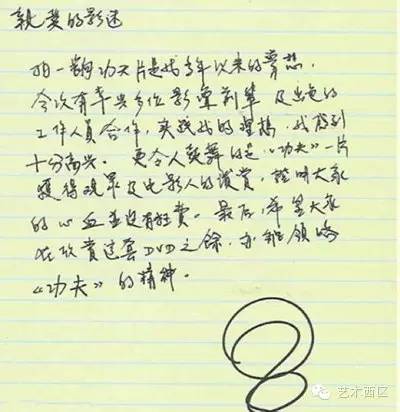 親愛的影迷
拍一齣功夫片是我多年以來的夢想，
今次有幸與多位影壇前輩及出色的
工作人員合作，實踐我的理想，我感到
十分高興。更令人鼓舞的是《功夫》一片
獲得觀眾及電影人的讚賞，證明大家
的心血並沒有白費。最后，希望大家
在欣賞這套DVD之餘，亦能領略
《功夫》的精神。
艺术西区